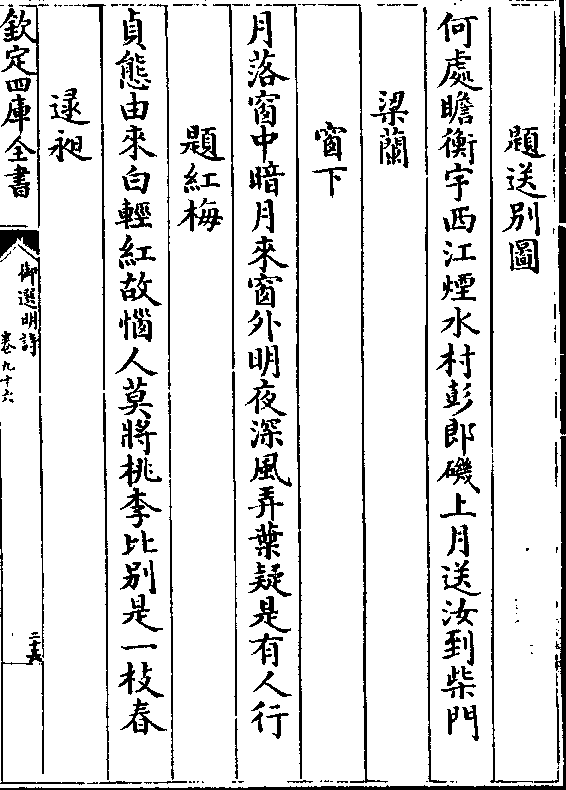 題送别圖
何處瞻衡宇西江煙水村彭郎磯上月送汝到柴門
梁蘭
窗下
月落窗中暗月來窗外明夜深風弄葉疑是有人行
題紅梅
貞態由來白輕紅故惱人莫將桃李比别是一枝春
逯昶
欽定四庫全書
御選明詩
卷九十六